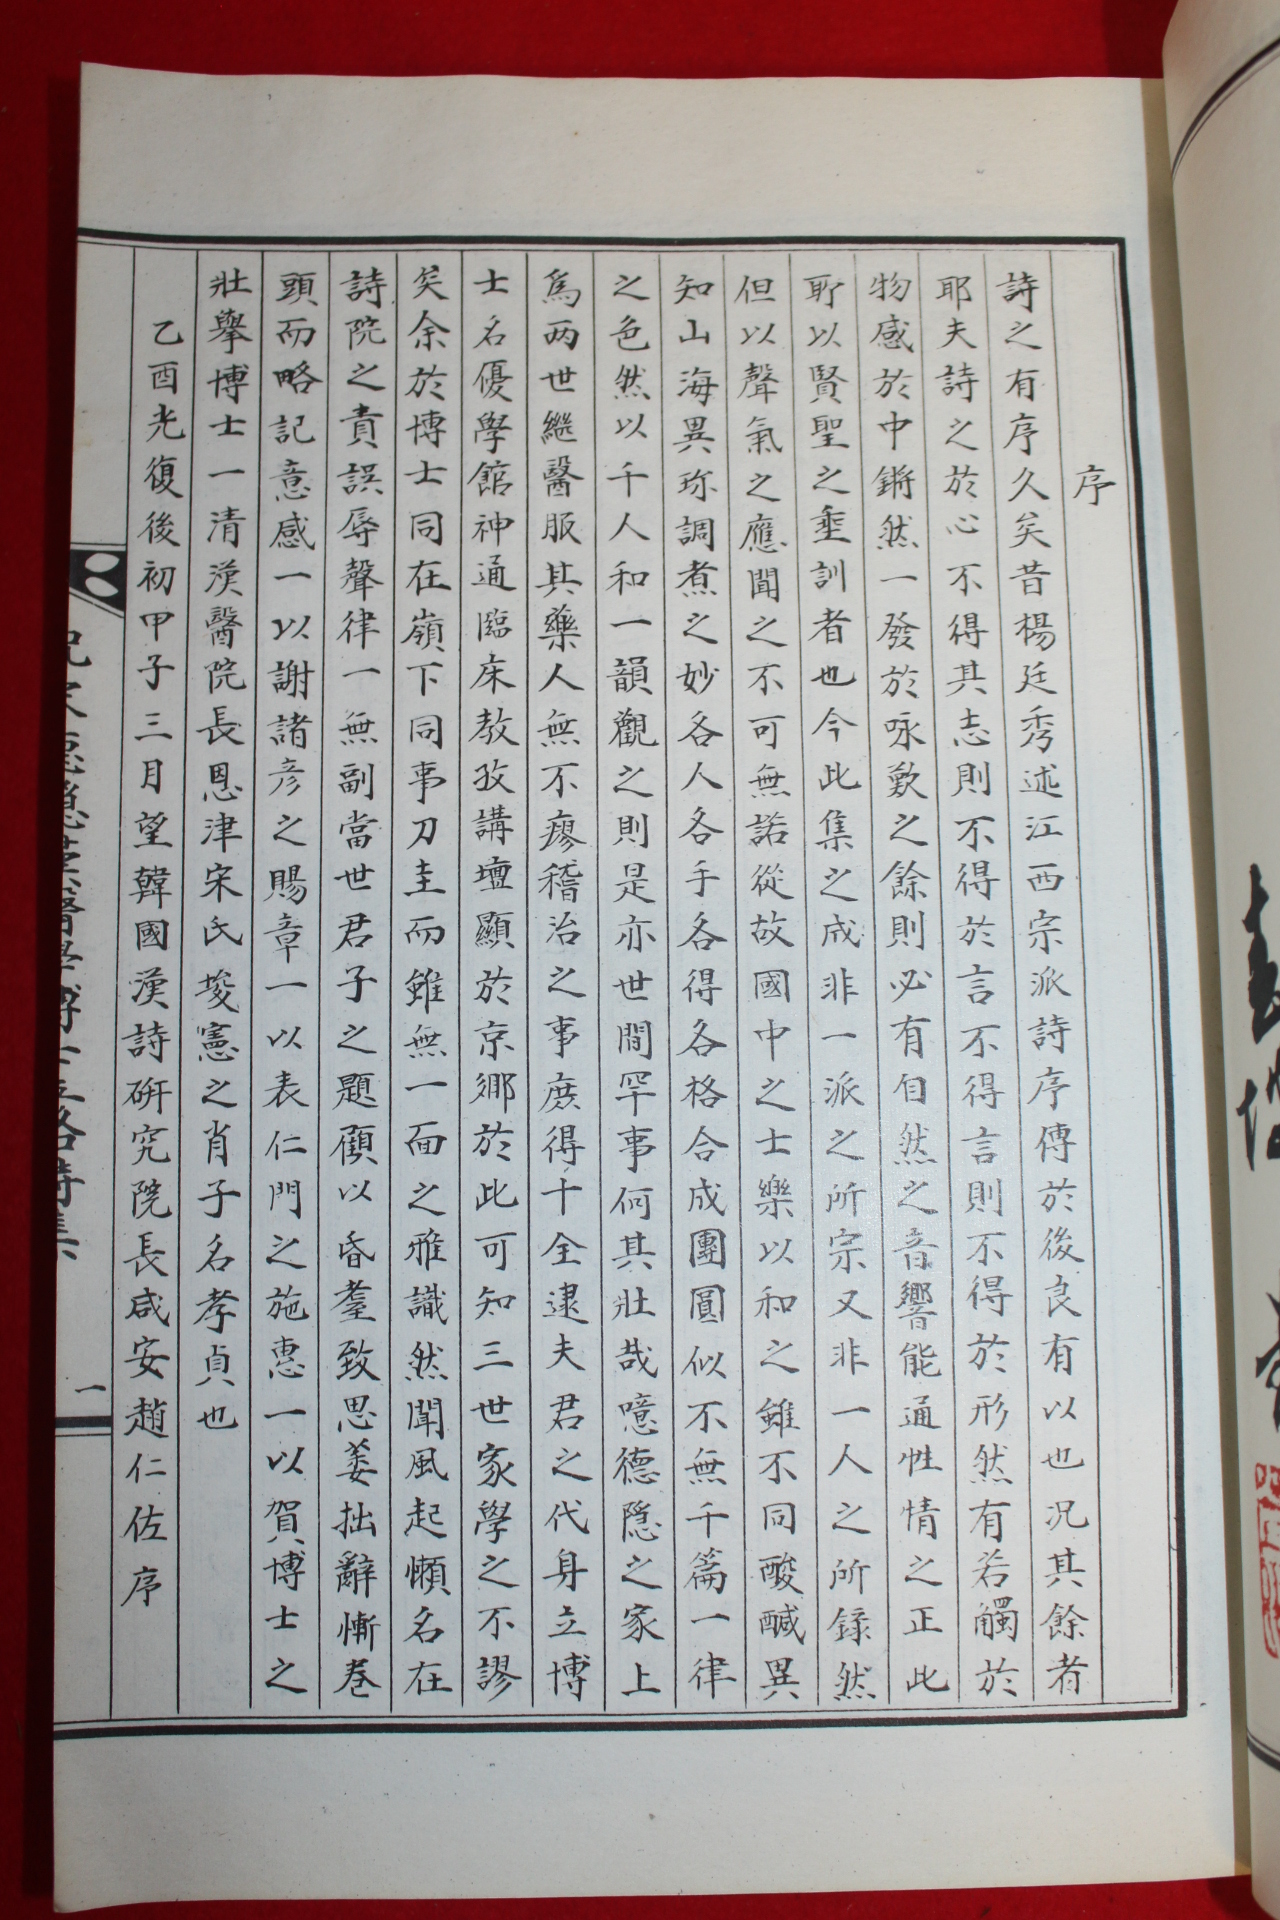 序
詩之有序久矣昔楊廷秀述江西宗派詩序傳於後良有以也況其餘者
耶夫詩之於心不得其志則不得於言不得言則不得於形然有若觸於
物感於中鏘然一發於咏歎之餘則必有自然之音響能通性情之正此
耶以賢聖之垂訓者也今此集之成非一派之所宗又非一人之所錄然
但以聲氣之應聞之不可無諾從故國中之士樂以和之雖不同酸醎異
知山海異珎調煮之妙各人各手各得各格合成團圓似不無千篇一律
之色然以千人和一韻觀之則是亦世間罕事何其壯哉噫德隱之家上
爲兩世繼醫服其藥人無不瘳稽治之事庶得十全逮夫君之代身立博
士名優學館神通臨床教孜講壇顯於京鄉於此可知三世家學之不謬
矣余於博士同在嶺下同事刀圭而雖無一面之雅識然聞風起懶名在
詩院之責誤辱聲律一無副當世君子之題顧以昏耋致思萎拙辭慚卷
頭而略記意感一以謝諸彦之賜章一以表仁門之施惠一以賀博士之
壯擧博士一清漢醫院長恩津宋氏㷜憲之肖子名孝貞也
乙酉光復後初甲子三月望韓國漢詩硏究院長咸安趙仁佐序
一